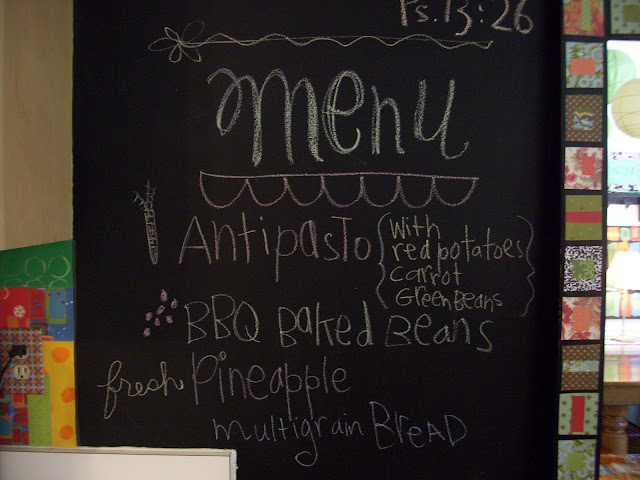 Ps. 13:26
Menu
Antipasto
with
red potatoes
carrot
Green Beans
BBQ Baked Beans
fresh Pineapple
multigrain Bread